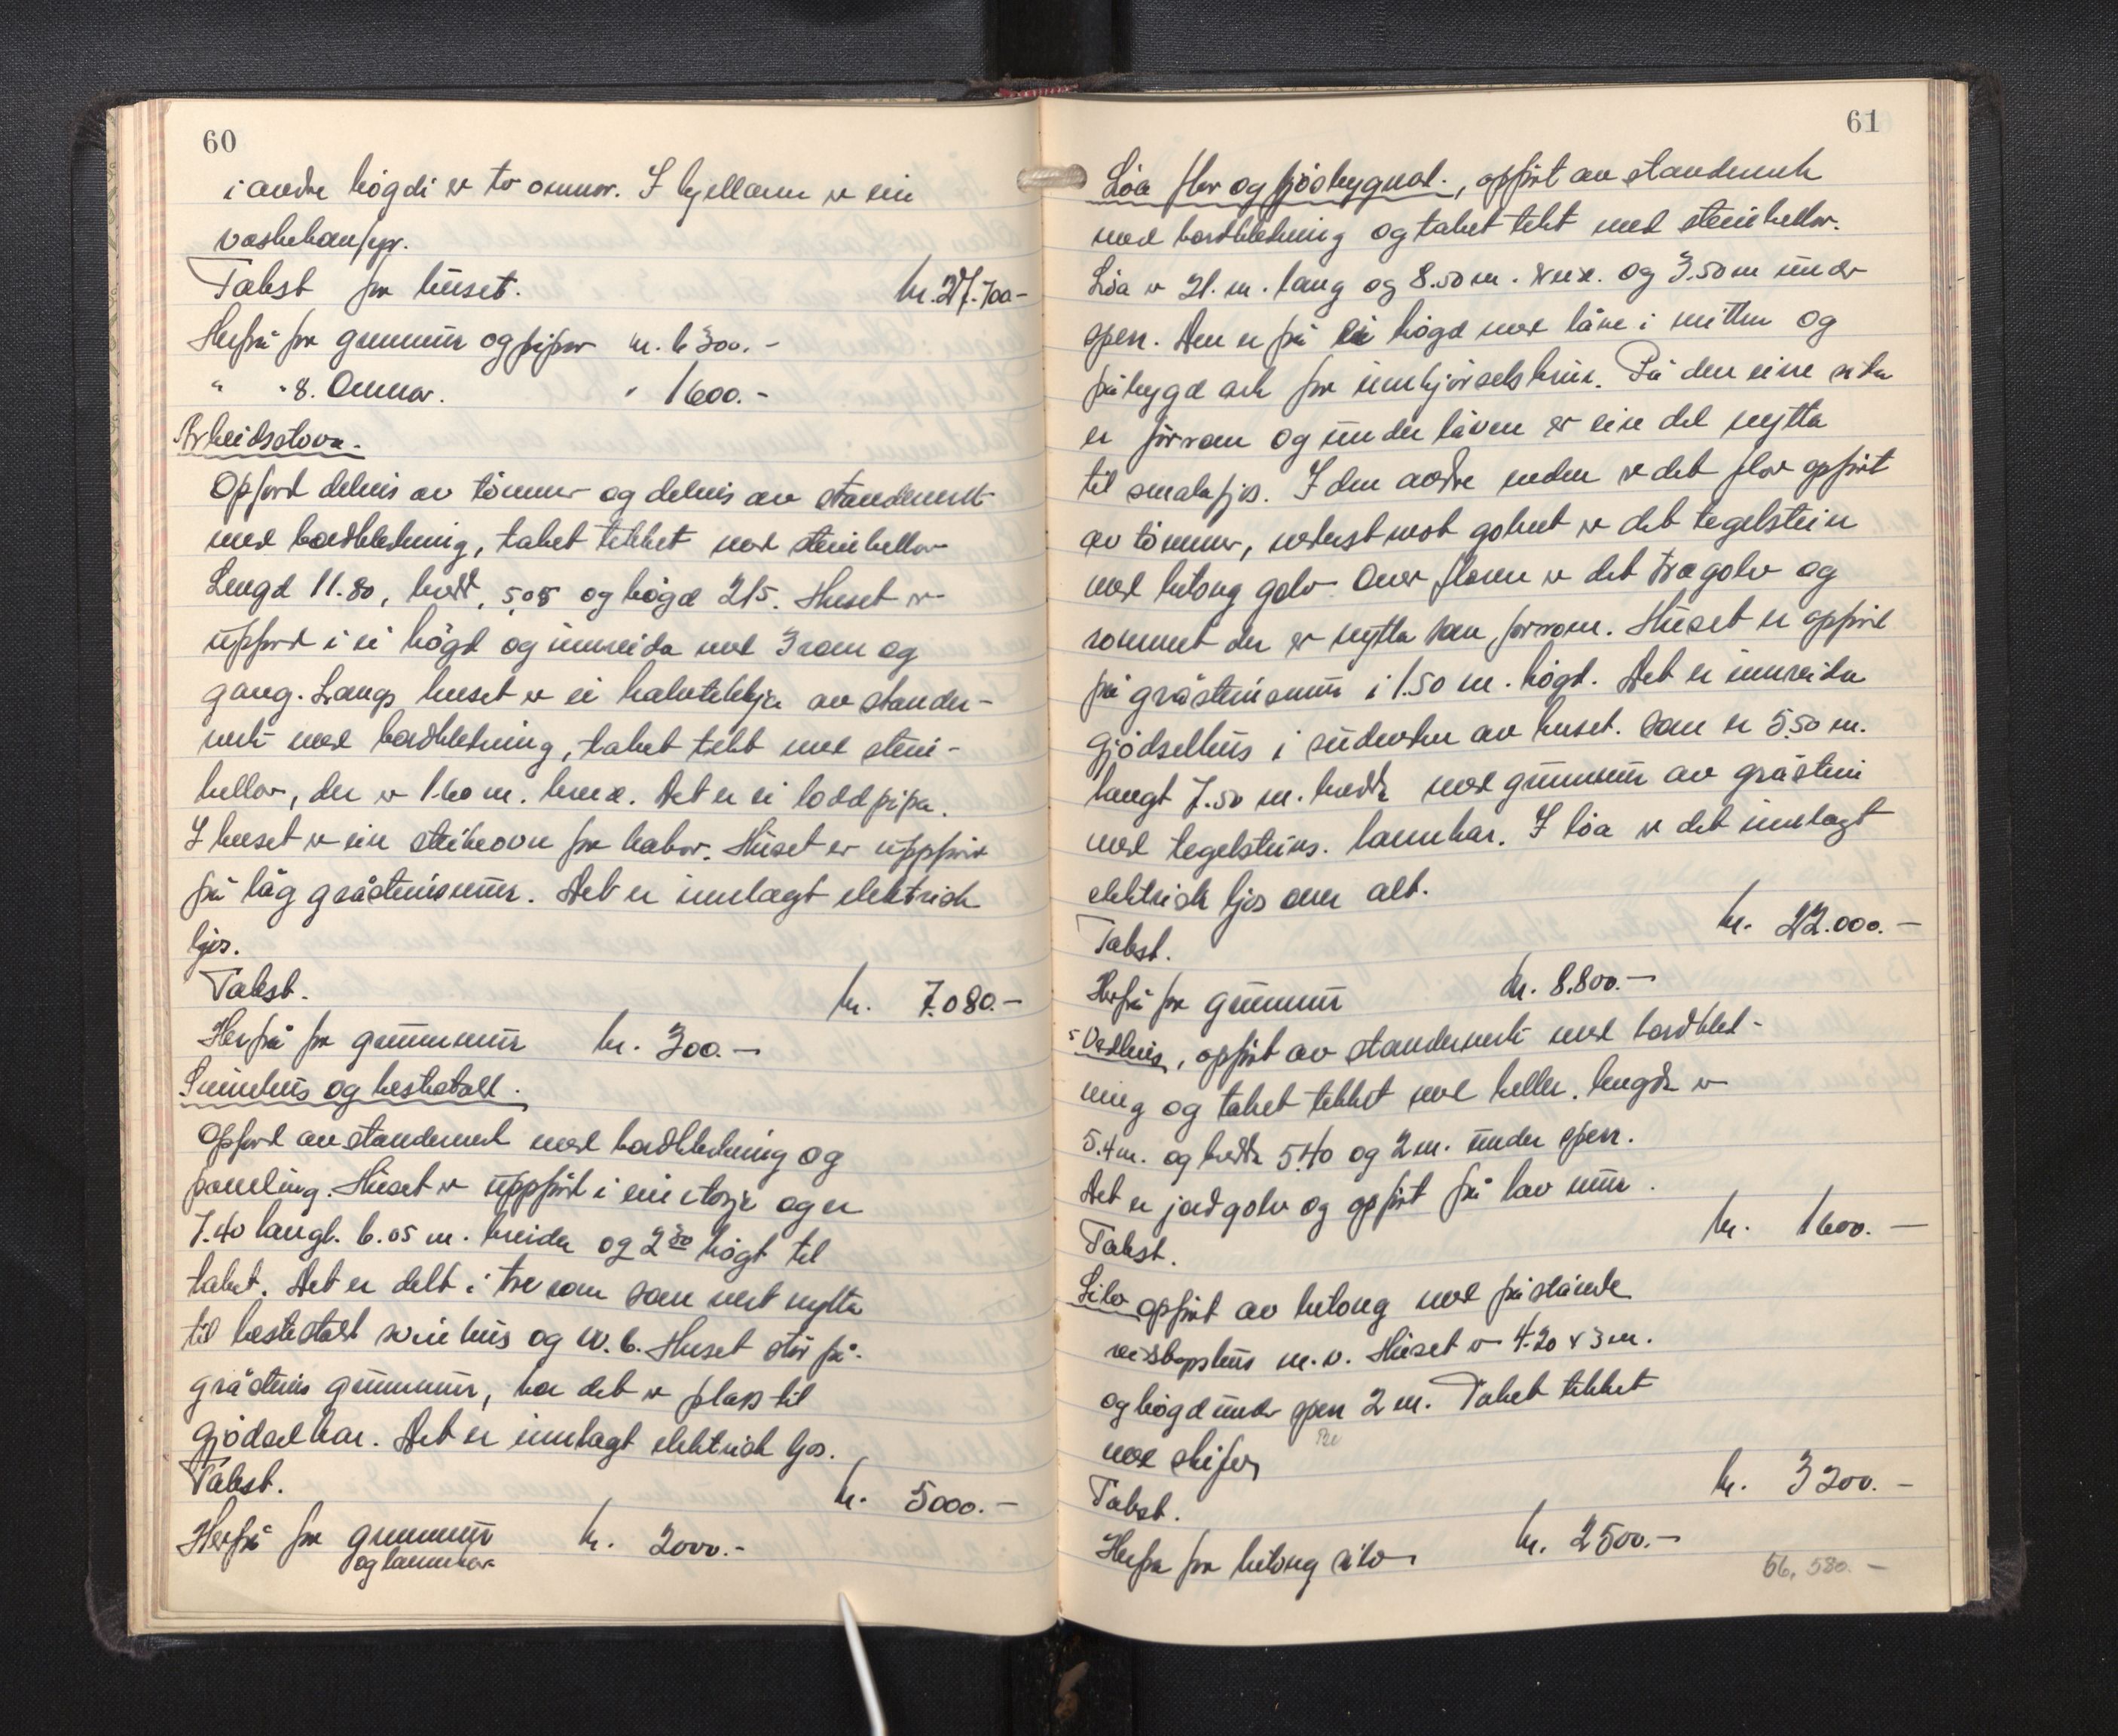 60
i andre högdi er to omnar. I kjellaren er ein
vaskekum/gr.
Takst for huset. kr. 27.700-
Herfrå for grunmur og pipor kr. 6300.-
" " 8. Omnar. " 1600.-
Arbeidsstova.
Opförd delvis av tömmer og delvis av standerverk
med bordkledning, taket tekket med steinhellor
Lengd 11.80, bredd, 5.05 og högd 215. Huset er
uppförd i ei högd og innreida med 3 rom og
gang. Langs huset er ei halvtekkja av stander-
verk med bordkledning, taket tekt med stein-
hellor, der er 1.60 m. breid. Det er ei loddpipa.
I huset er ein steikeovn for kakor. Huset er uppfört
på låg gråsteinsmur. Det er innlagt elektrisk
ljos.
Takst. kr. 7.080.-
Herfrå for grunnmur kr. 300.-
Svinehus og hestestall.
Opförd av standerverk med bordkledning og
paneling. Huset er uppfört i ein etasje og er
7.40 langt. 6.05 m. breida og 2.30 högt til
taket. Det er delt i tre rom som vert nytta
til hestestall svinehus og W.C. Huset står på
gråsteins grunnmur, kor det er plass til
gjödselkar. Det er innlagt elektrisk ljos.
Takst. kr. 5000.-
Herfrå for grunnmur kr. 2000.-
og lannkar
61
Löa flor og fjösbygnad., oppfört av standerverk
med bordkledning og taket tekt med steinhellor.
Löa er 21. m. lang og 8.50 m. breid. og 3.50 m under
sperr. Den er på ei högd med låve i mitten og
påbygd ark for innkjörselsbrui. På den eine sida
er förrom og under låven er ein del nytta
til smalafjös. I den andre enden er det flor oppfört
av tömmer, nederst mot golvet er det tegelstein
med betong golv. Over floren er det tregolv og
rommet der er nytta som forrom. Huset er oppfört
på gråsteinsmur i 1.50 m. högd. Det er innreida
gjödselhus i sudenden av huset. som er 5.50 m.
langt 7.50 m. bredde med grunnmur av gråstein
med tegelsteins. lannkar. I löa er det innlagt
elektrisk ljos over alt.
Takst. kr. 22.000.-
Herfrå for grunnmur kr. 8.800.-
Vedhus, oppfört av standerverk med bordkled-
ning og taket tekket med heller. lengde er
5.4 m. og bredde 5.40 og 2 m. under sperr.
Det er jordgolv og oppfört på lav mur.
Takst. kr. 1600.-
Silo oppfört av betong med påstående
reidskapshus m.v. Huset er 4.20 x 3 m.
og högd under sperr 2 m. Taket tekket
med skifer
Takst. kr. 3200.-
Herfra for betong silo kr. 2500.-
66,580.-